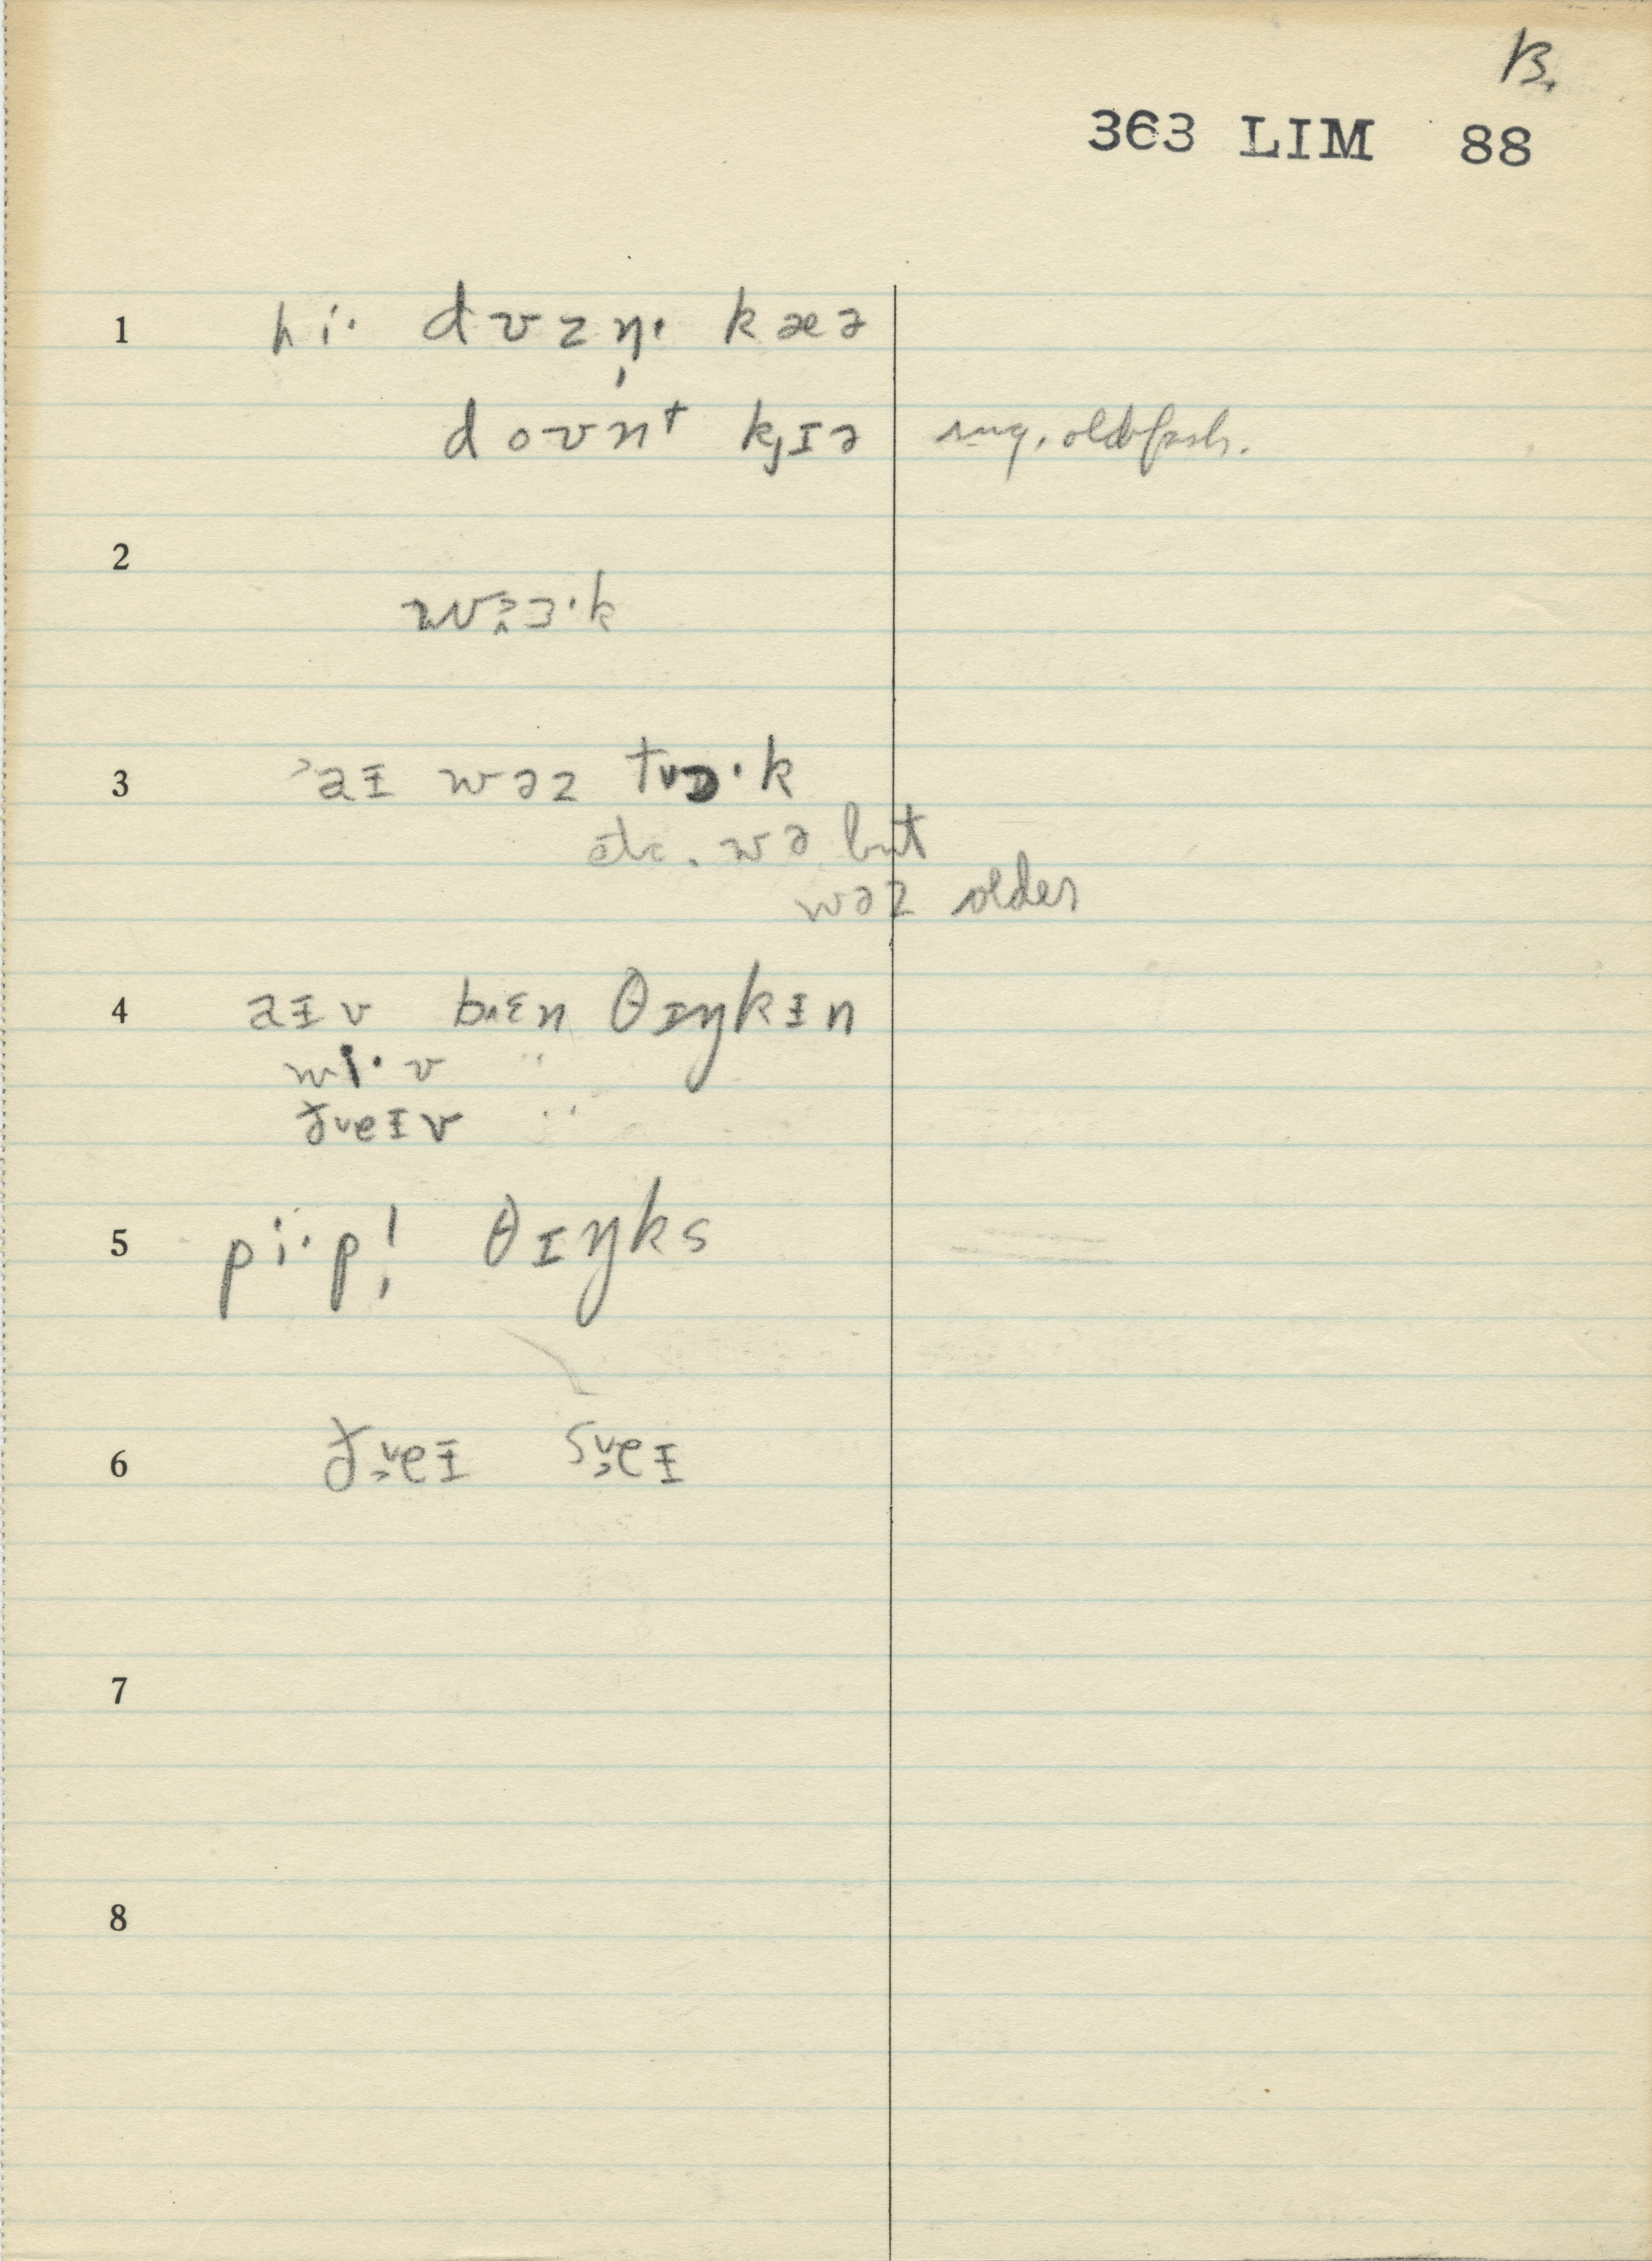 B.
363 LIM 88
1 hi· dʌzn̩· kæə
doʊnᵗ kɟɪə sug. oldfash.
2
3 ˃aɪ wəz tᵥɔ·k
etc. wə but
wəz older
4 aɪv bɪᵋn θɪŋkɪn
wi·v "
ðᵥeɪv "
5 pi·p! θɪŋks
6 ðᵥeɪ sᵥeɪ
7
8